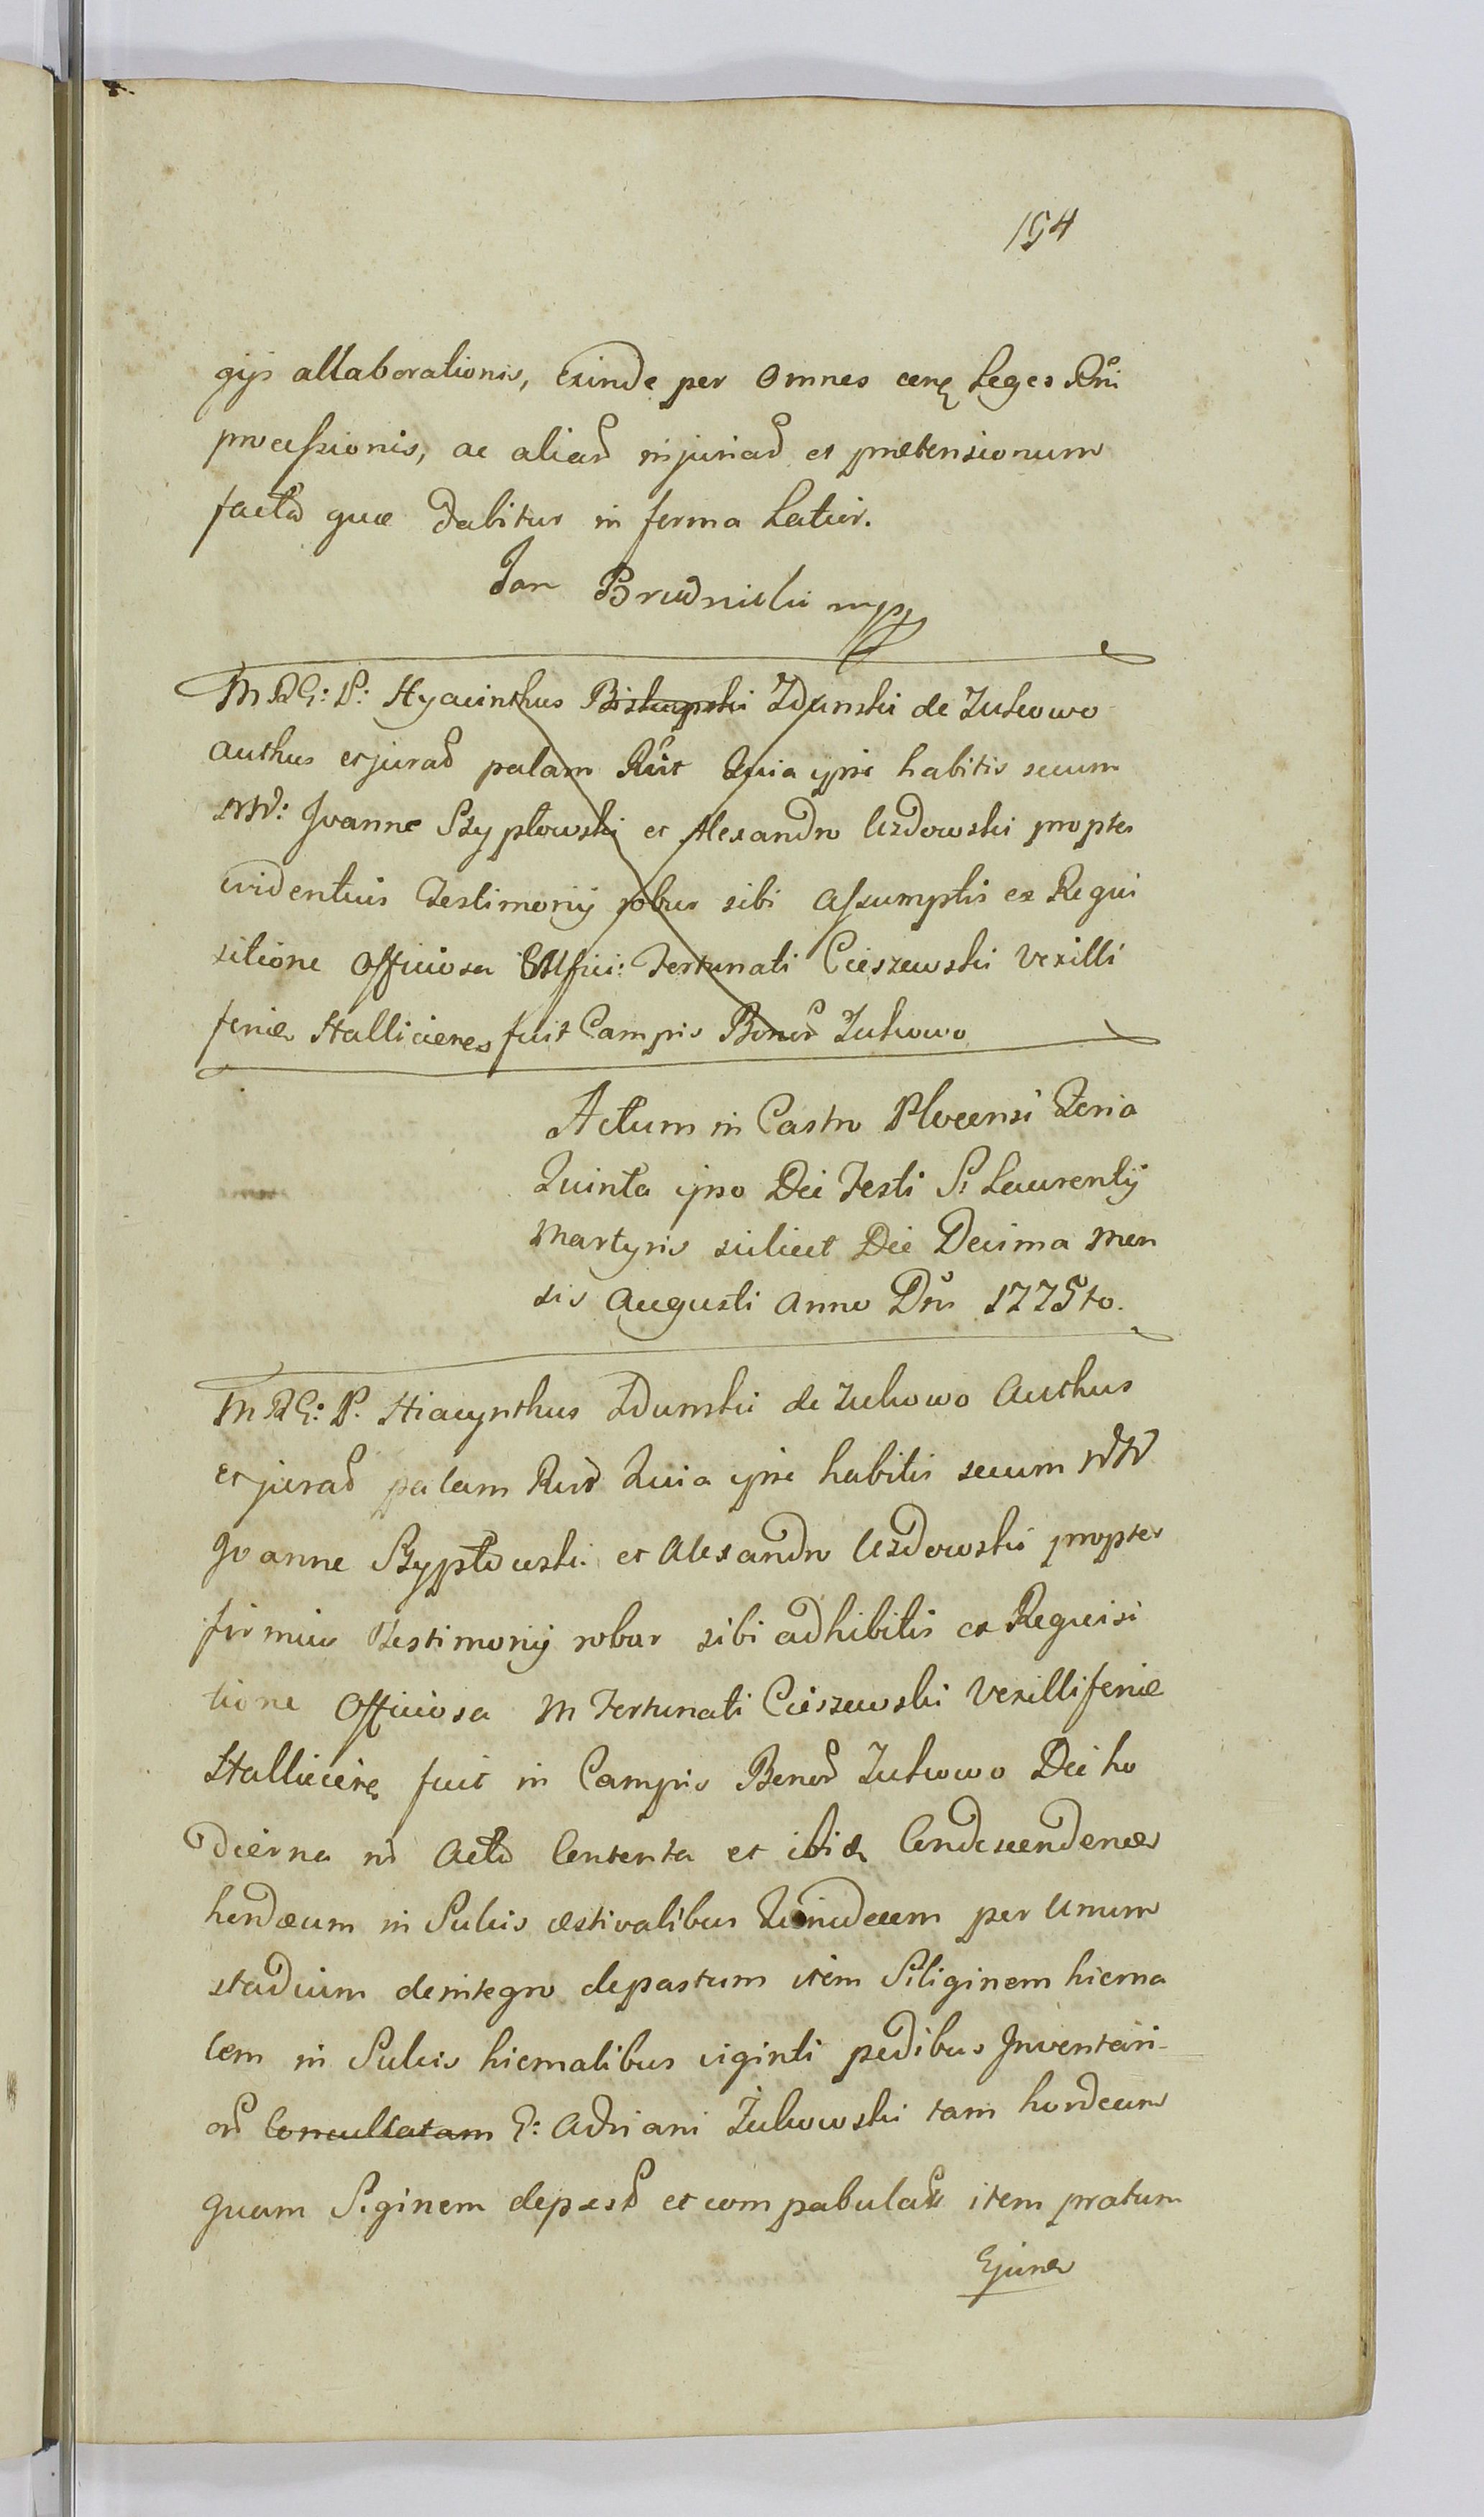 194
gijs allaborationis, exinde per omnes cenę Leges Rni
processionis, ac aliarῦ injuriarῦ et prætensionum
factῦ quæ dabitur in forma Latior.
Jan Brudnicki mp
M RG: P: Hyacinthus Biskupski Zdunski de Zukowo
authus et juratῦ palam Rnit Quia ipse habitis secum
W: Joanne Szypłowski et Alexandro Uzdowski propter
evidentius Testimonij robur sibi assumptis ex Requi
sitione Officiosa Mfici: Fortunati Cieszewski Vexilli
feriæ Halliciens fuit Campis Bonorῦ Zukowo
Actum in Castro Plocensi Feria
Quinta ipso Die Festi S: Laurentij
Martyris scilicet Die Decima Men
sis Augusti Anno Dni 1775to.
M RG: P. Hiacynthus Zdunski de Zukowo Authus
et juratῦ palam Rnit Quia ipse habitis secum WW
Joanne Szypłowski et Alexandro Uzdowski propter
firmius Testimonij robur sibi adhibitis ex Requisi
tione Officiosa M Fortunati Cieszewski Vexilliferiæ
Hallicieñ fuit in Campis Bonorῦ Zukowo Die ho
dierna in Actῦ Contenta et ibiđ Condescendendo
hordeum in Sulcis æstivalibus Quindecem per Unum
stadium deintegro depastum item Siliginem hiema
lem in Sulcis hiemalibus viginti pedibus Inventari-
orῦ Conculcatam G: Adriani Żukowski tam hordeum
quam Siginem depastῦ et compabulatῦ item pratum
Ejusdῦ